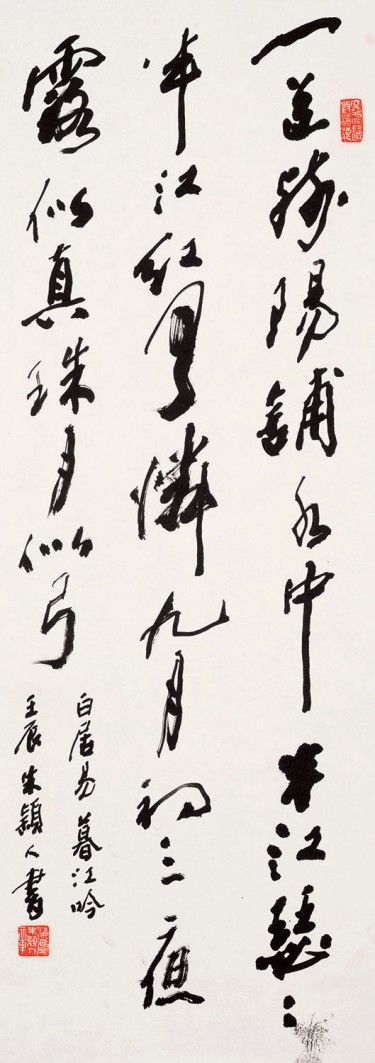 一道殘陽舖水中半江瑟〻
半江紅可憐九月初三夜
露似真珠月似弓
白居易暮江吟
壬辰朱穎人書